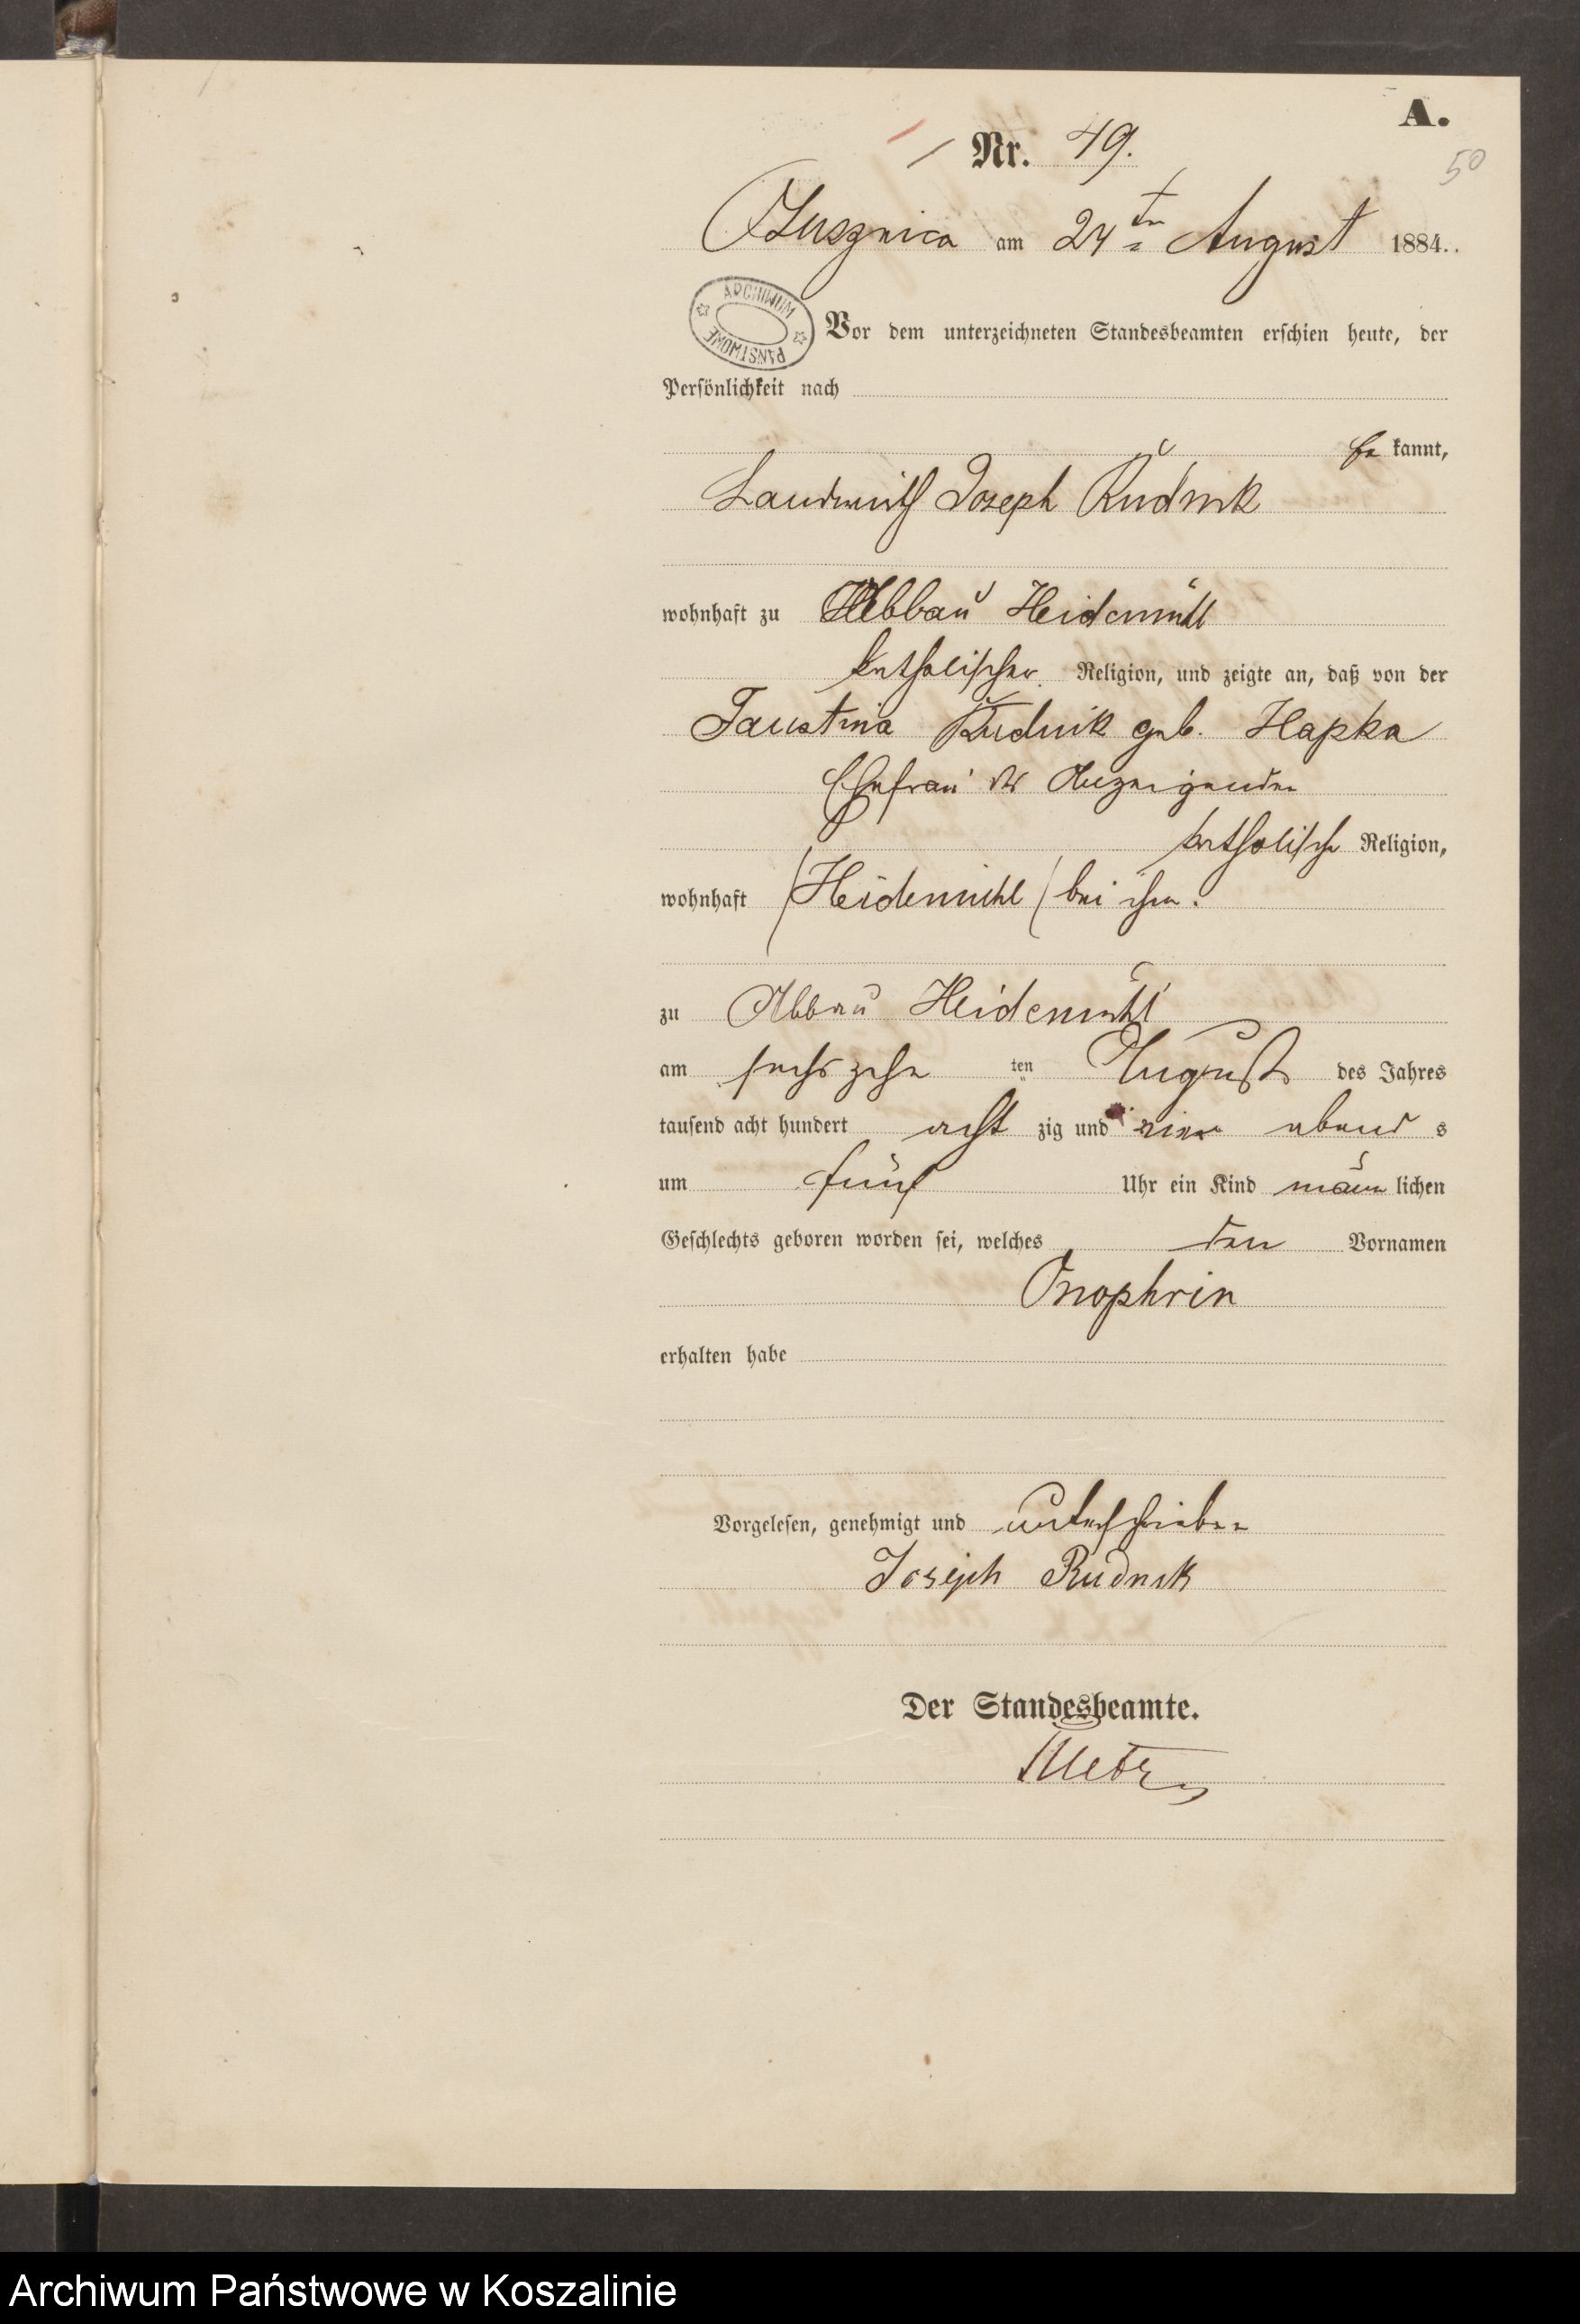 A.
Nr. 49.
50
Kłusznica am 24ten August 1884.
ARCHIWUM PAŃSTWOWE
Vor dem unterzeichneten Standesbeamten erschien heute, der
Persönlichkeit nach
be kannt,
Landwirth Joseph Rudnik
wohnhaft zu Abbau Heidemühl
katholischer Religion, und zeigte an, daß von der
Faustina Rudnik geb. Hapka
Ehefrau des Anzeigenden
katholische Religion,
wohnhaft (Heidemühl) bei ihm.
zu Abbau Heidemühl
am sechszehn ten August des Jahres
tausend acht hundert acht zig und vier abend s
um fünf Uhr ein Kind männ lichen
Geschlechts geboren worden sei, welches den Vornamen
Onophrin
erhalten habe
Vorgelesen, genehmigt und unterschrieben
Joseph Rudnik
Der Standesbeamte.
Archiwum Państwowe w Koszalinie